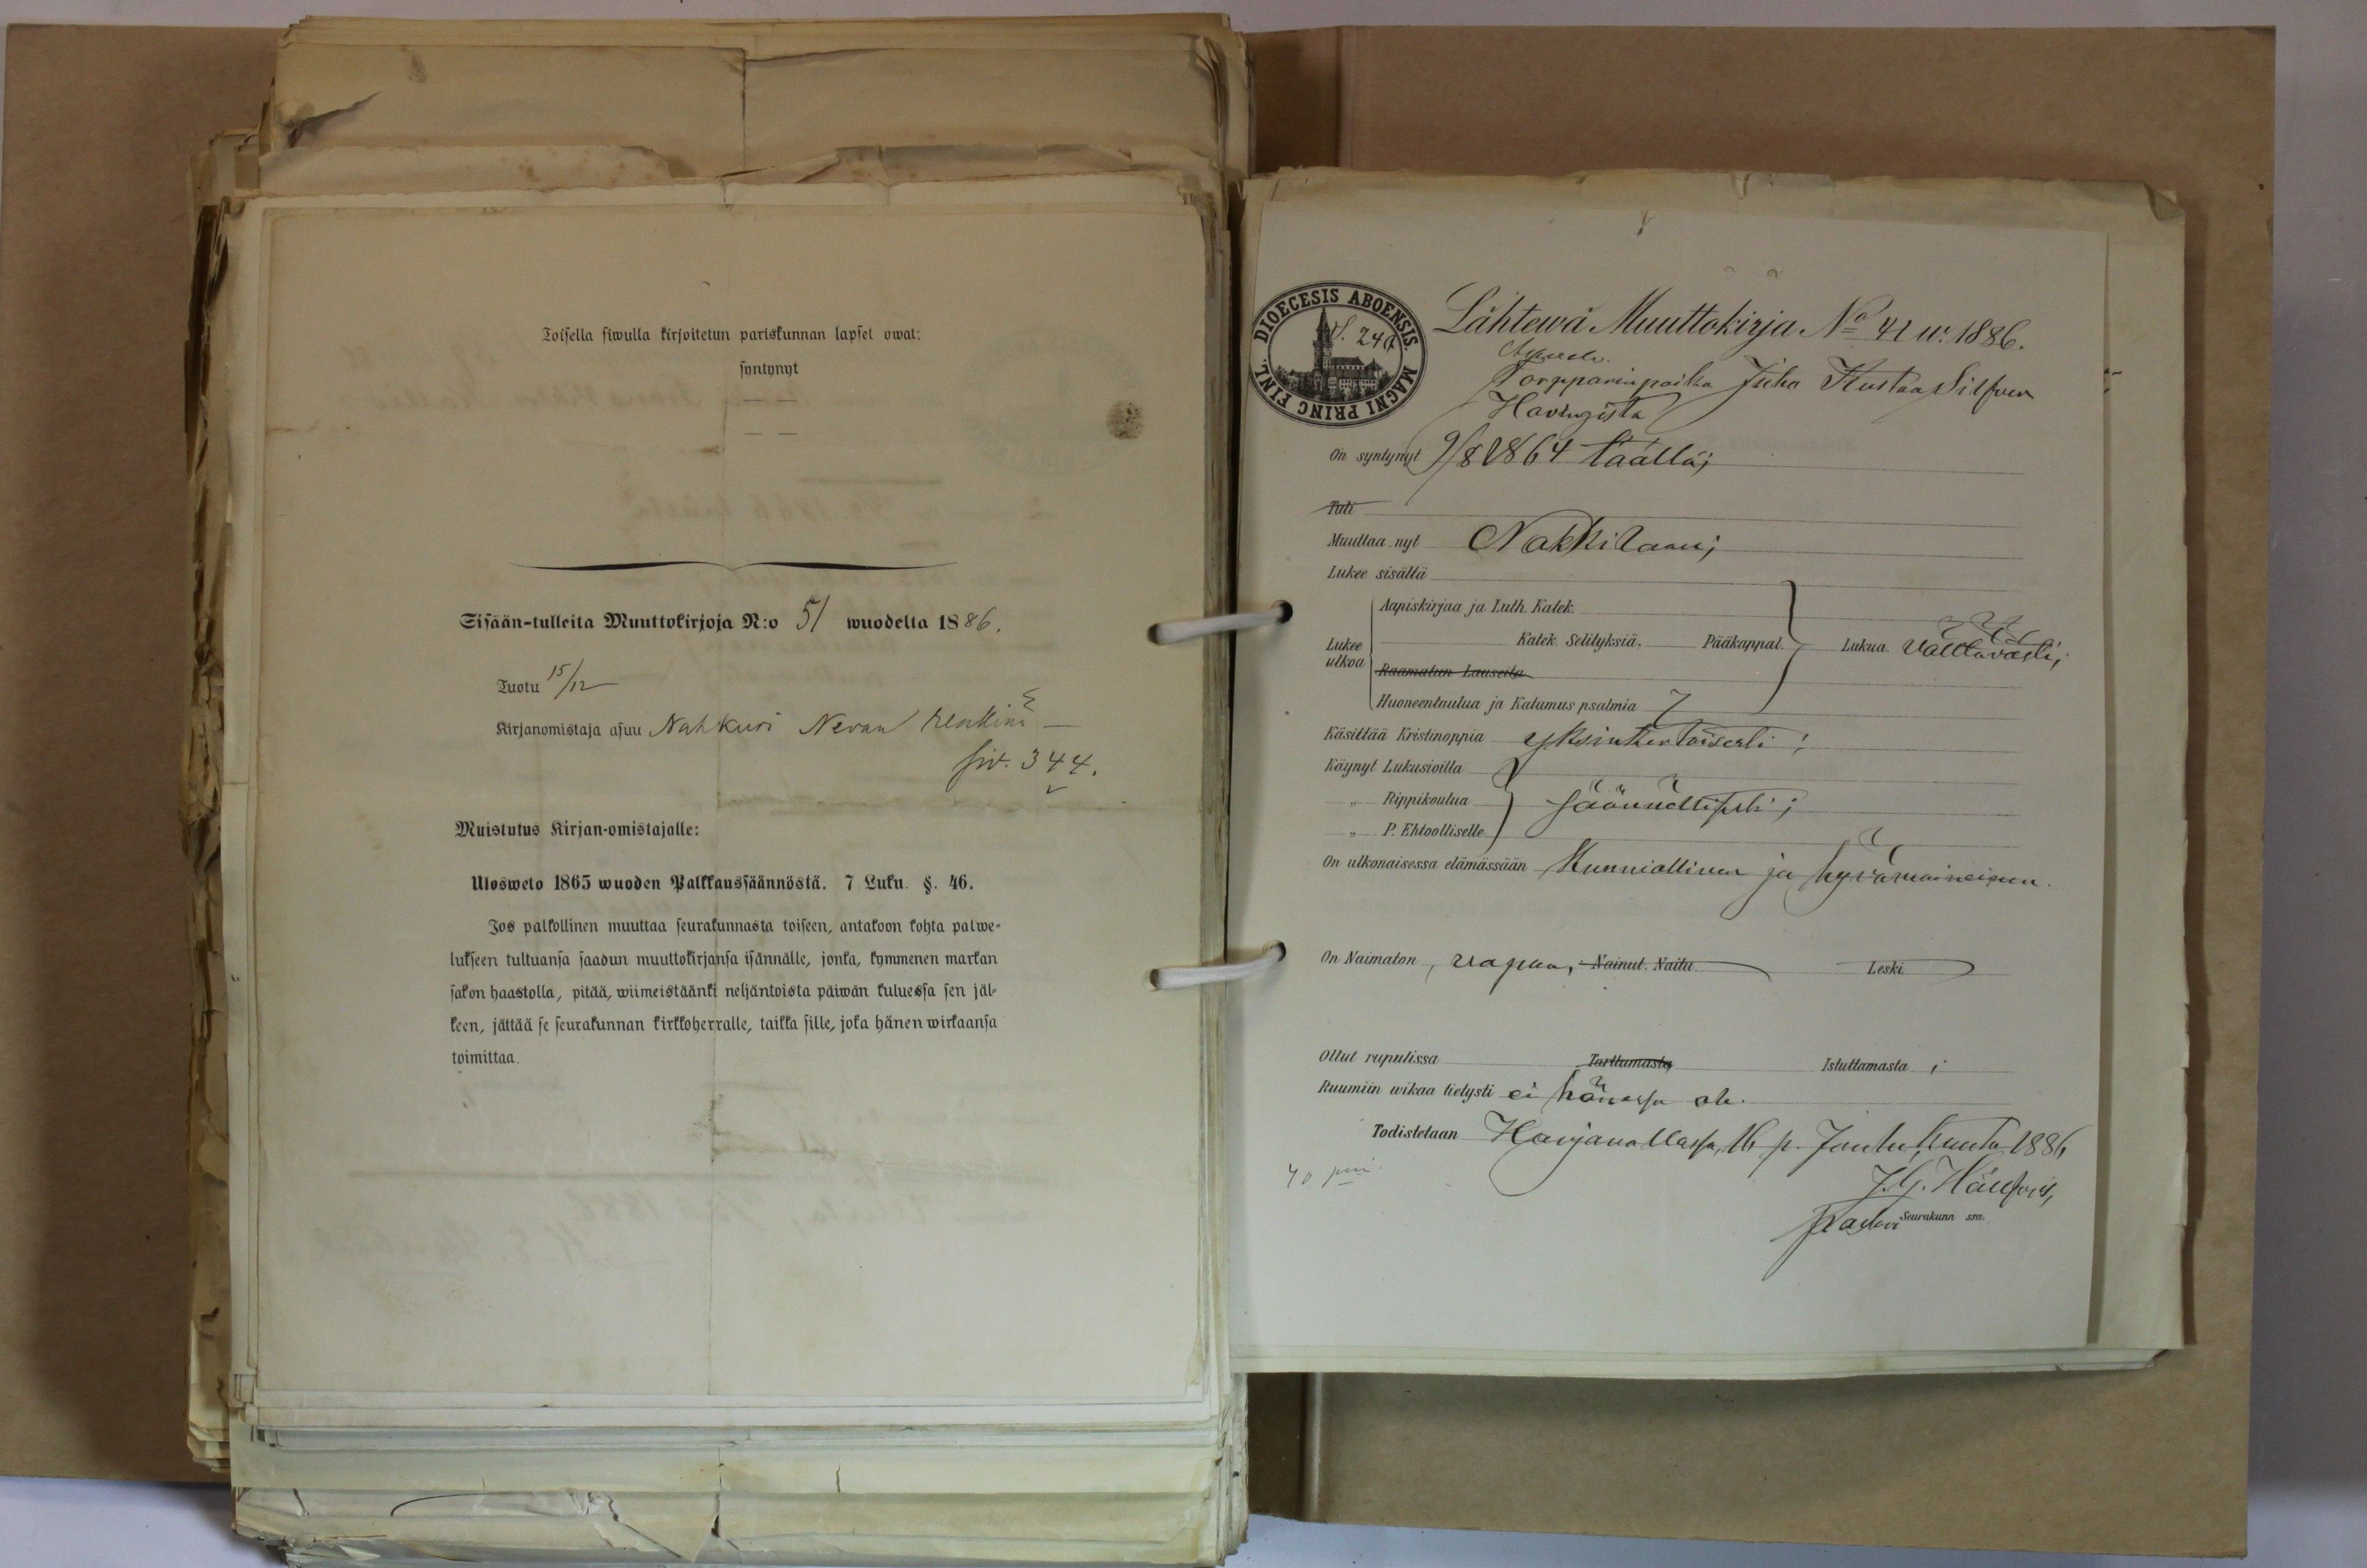 Toisella siwulla kirjoitetun pariskunnan lapset owat:
syntynyt
— —
— —
Sisään-tulleita Muuttokirjoja N:o 51 wuodelta 1886.
Tuotu 15/12
Kirjanomistaja asuu Nahkuri Nevan renkinä —
siv. 344.
Muistutus Kirjan-omistajalle:
Ulosweto 1865 wuoden Palkkaussäännöstä. 7 Luku. §. 46.
Jos palkollinen muuttaa seurakunnasta toiseen, antakoon kohta palwe-
lukseen tultuansa saadun muuttokirjansa isännälle, jonka, kymmenen markan
sakon haastolla, pitää, wiimeistäänki neljäntoista päiwän kuluessa sen jäl-
keen, jättää se seurakunnan kirkkoherralle, taikka sille, joka hänen wirkaansa
toimittaa.
DIOECESIS ABOENSIS. MAGNI PRINC FINL.
S. 247
Lähtewä Muuttokirja No 41 w. 1886.
Torpparinpoika Juha Kustaa Silfven
Havingista
On syntynyt 9/8 1864 täällä;
Tuli
Muuttaa nyt Nakkilaan;
Lukee sisältä
Lukee ulkoa
Aapiskirjaa ja Luth. Katek.
Katek. Selityksiä. Pääkappal. Lukua välttävästi;
Raamatun Lauseita
Huoneentaulua ja Katumus psalmia
Käsittää Kristinoppia yksinkertaisesti;
Käynyt Lukusioilla
" Rippikoulua säännöllisesti;
" P. Ehtoolliselle
On ulkonaisessa elämässään Kunniallinen ja hyvämaineinen.
On Naimaton, vapaa, Nainut. Naitu. Leski
Ollut rupulissa Tarttumasta Istuttamasta;
Ruumiin wikaa tietysti ei hänessä ole.
Todistetaan Harjavallassa, 16 p. Joulukuuta 1886
40 pni.
J.G. Hällfors,
Pastori Seurakunn ssa.